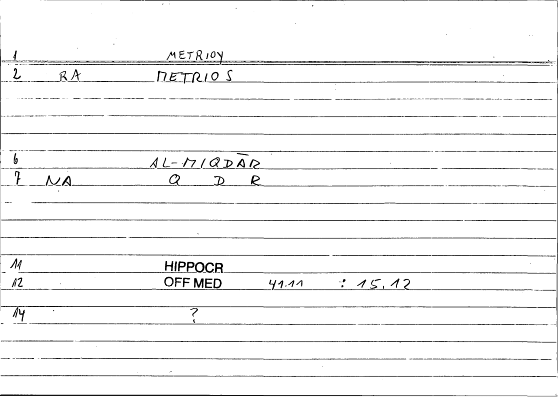 1 METRIOY
2 RA METRIOS
6 AL-MIQDĀR
7 NA Q D R
11 HIPPOCR
12 OFF MED 41.11 : 15.12
14 ?